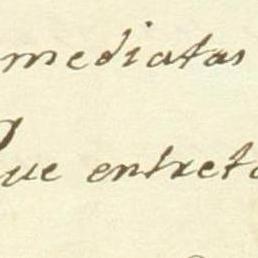 mediatas
que entreta